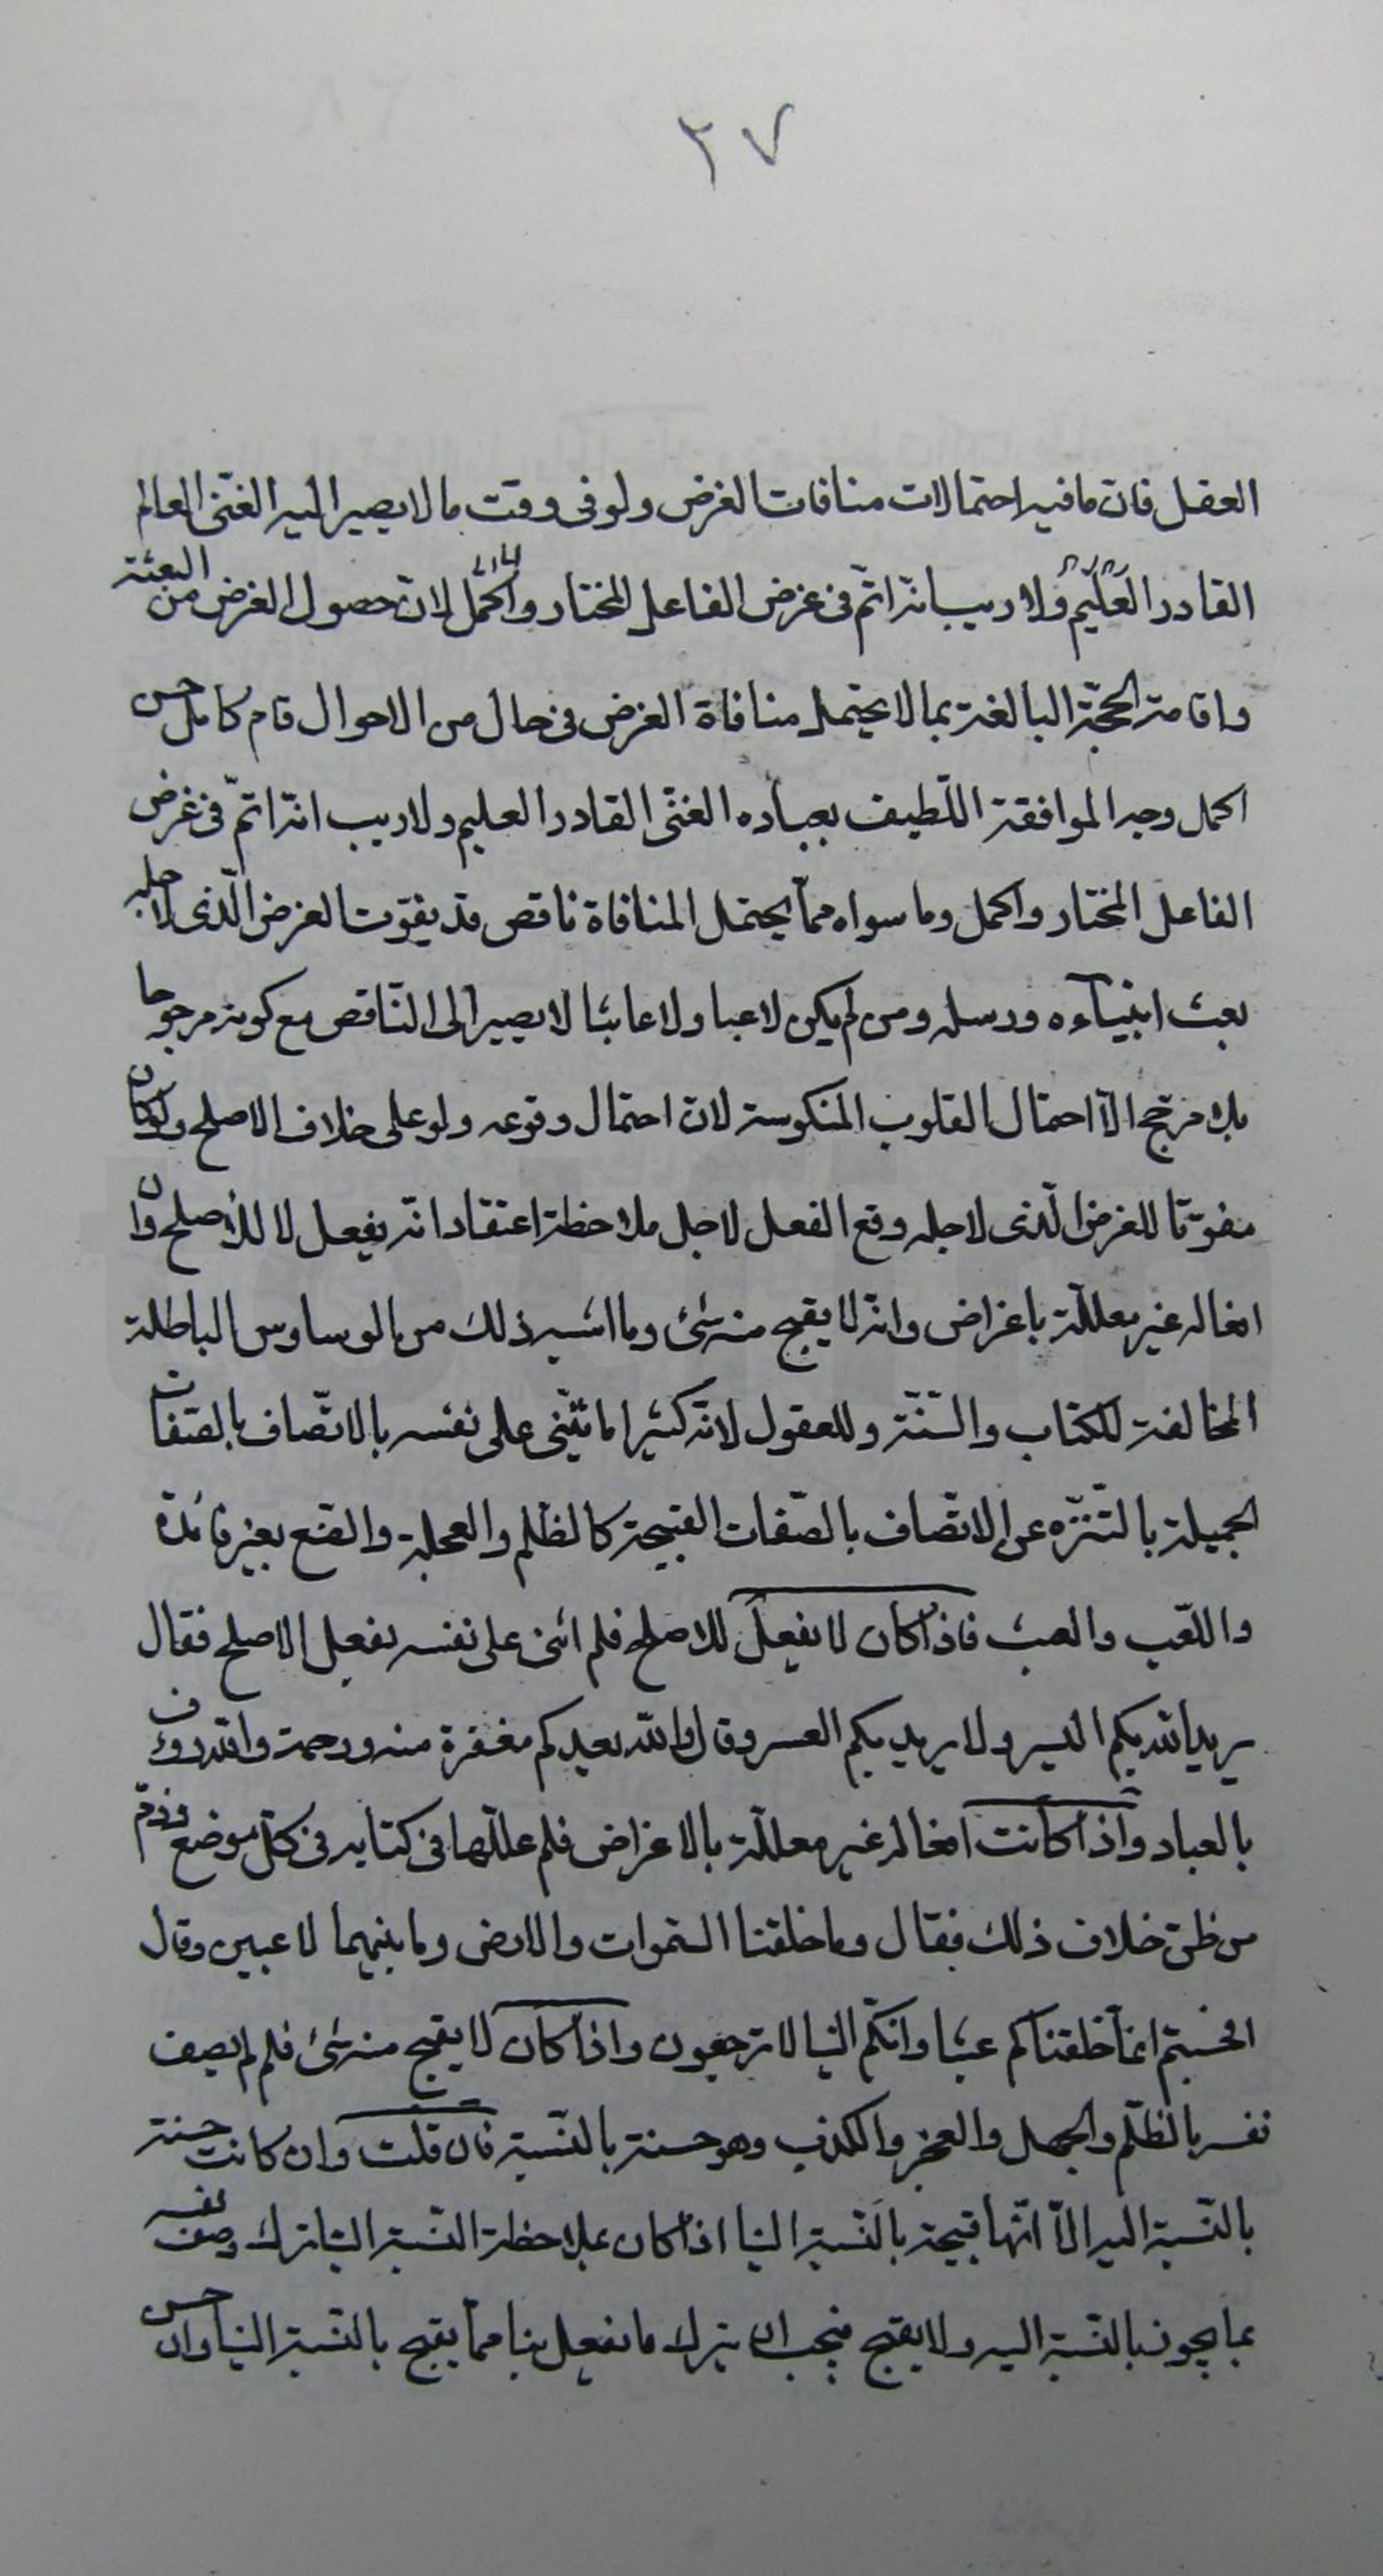 ٢٧
العقل فان ما فيه احتمالات منافات الغرض ولو فى وقت ما لا يصير اليه الغنى العالم
القادر العليم ولا ريب انه اتم فى غرض الفاعل المختار واكمل لان حصول الغرض من البعثة
واقامة الحجة البالغة بما لا يحتمل منافاة الغرض فى حال من الاحوال تام كامل حسن
اكمل وجه الموافقة اللطيف بعباده الغنى القادر العليم ولا ريب انه اتم فى غرض
الفاعل المختار واكمل وما سواه مما يحتمل المنافاة ناقص قد يفوت الغرض الذى لاجله
بعث انبيآءه ورسله ومن لم يكن لاعبا ولا عابثا لا يصير الى الناقص مع كونه مرجوحا
بلا مرجح الا احتمال القلوب المنكوسة لان احتمال وقوعه ولو على خلاف الاصلح ولو كان
مفوتا للغرض الذى لاجله وقع الفعل لاجل ملاحظة اعتقاد انه يفعل لا للاصلح وان
افعاله غير معللة باغراض وانه لا يقبح منه شئ وما اشبه ذلك من الوساوس الباطلة
المخالفة للكتاب والسنة وللعقول لانه كثيرا ما يثنى على نفسه بالاتصاف بالصفات
الجميلة بالتنزه عن الاتصاف بالصفات القبيحة كالظلم والعجلة والقنع بغير فائدة
واللعب والعبث فاذا كان لا يفعل للاصلح فلم اثنى على نفسه بفعل الاصلح فقال
يريد الله بكم اليسر ولا يريد بكم العسر وقال والله يعدكم مغفرة منه ورحمة والله رؤف
بالعباد واذا كانت افعاله غير معللة بالاغراض فلم عللها فى كتابه فى كل موضع وذم
من ظن خلاف ذلك فقال وما خلقنا السموات والارض وما بينهما لاعبين وقال
افحسبتم انما خلقناكم عبثا وانكم الينا لا ترجعون واذا كان لا يقبح منه شئ فلم لم يصف
نفسه بالظلم والجهل والعجز والكذب وهو حسنة بالنسبة فان قلت وان كانت حسنة
بالنسبة اليه الا انها قبيحة بالنسبة الينا اذا كان بملاحظة النسبة الينا ترك وصف نفسه
بما يجوز بالنسبة اليه ولا يقبح فيجب ان يترك ما يفعل بنا مما يقبح بالنسبة الينا وان حسن